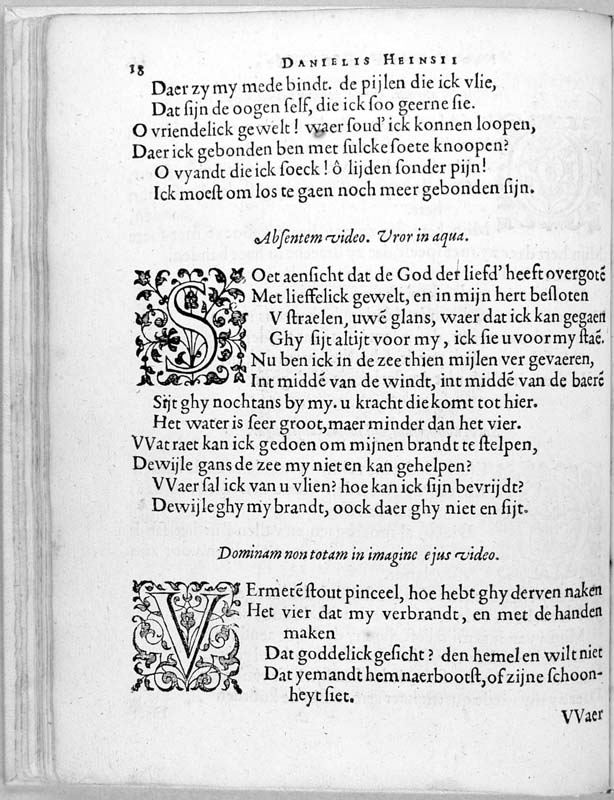 18 DANIELIS HEINSII
Daer zy my mede bindt. de pijlen die ick vlie,
Dat ſijn de oogen ſelf, die ick ſoo geerne ſie.
O vriendelick gewelt! waer ſoud' ick konnen loopen,
Daer ick gebonden ben met ſulcke ſoete knoopen?
O vyandt die ick ſoeck! ô lijden ſonder pijn!
Ick moeſt om los te gaen noch meer gebonden ſijn.
Abſentem video. Vror in aqua.
SOet aenſicht dat de God der liefd' heeft overgotē
Met lieffelick gewelt, en in mijn hert beſloten
V ſtraelen, uwē glans, waer dat ick kan gegaen
Ghy ſijt altijt voor my, ick ſie u voor my ſtaē.
Nu ben ick in de zee thien mijlen ver gevaeren,
Int middē van de windt, int middē van de baerē
Sijt ghy nochtans by my. u kracht die komt tot hier.
Het water is ſeer groot, maer minder dan het vier.
VVat raet kan ick gedoen om mijnen brandt te ſtelpen,
Dewijle gans de zee my niet en kan gehelpen?
VVaer ſal ick van u vlien? hoe kan ick ſijn bevrijdt?
Dewijle ghy my brandt, oock daer ghy niet en ſijt.
Dominam non totam in imagine ejus video.
VErmetē ſtout pinceel, hoe hebt ghy derven naken
Het vier dat my verbrandt, en met de handen
maken
Dat goddelick geſicht? den hemel en wilt niet
Dat yemandt hem naerbootſt, of zijne ſchoon-
heyt ſiet.
VVaer